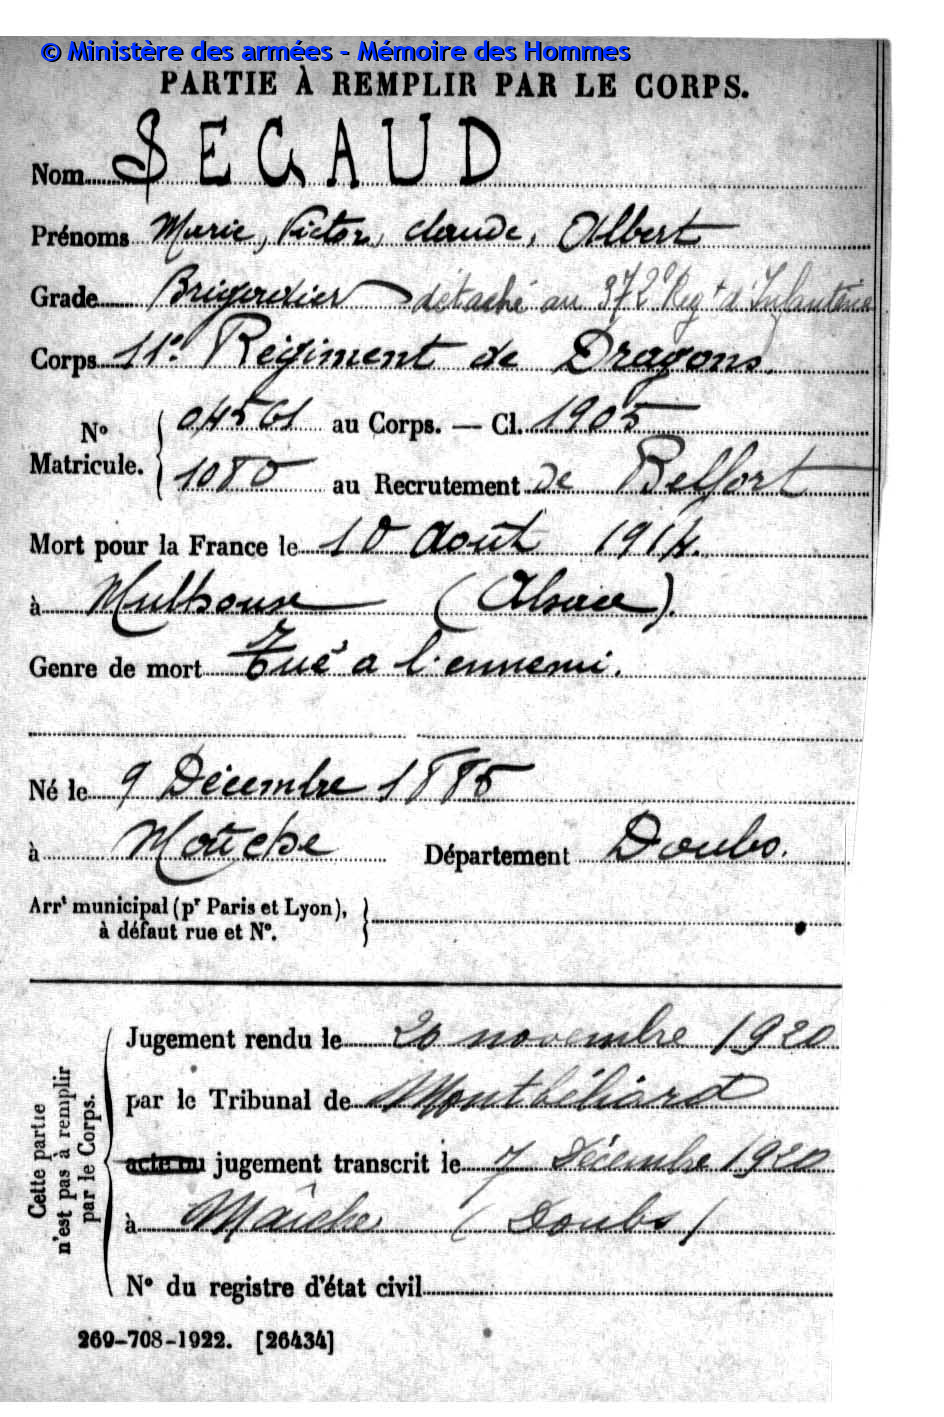 © Ministère des armées - Mémoire des Hommes
PARTIE À REMPLIR PAR LE CORPS.
Nom SEGAUD
Prénoms Marie, Victor, claude, Albert
Grade Brigadier détaché au 372e Regt d'Infanterie
Corps 11e Régiment de Dragons.
No Matricule. 04561 au Corps. — Cl. 1905
1080 au Recrutement de Belfort
Mort pour la France le 10 Août 1914.
à Mulhouse (Alsace).
Genre de mort Tué a l'ennemi.
Né le 9 Décembre 1885
à Maîche Département Doubs.
Arrt municipal (pr Paris et Lyon),
à défaut rue et No.
Cette partie n'est pas à remplir par le Corps.
Jugement rendu le 20 novembre 1920
par le Tribunal de Montbéliard
acte ou jugement transcrit le 7 Décembre 1920
à Maîche (Doubs)
No du registre d'état civil
269-708-1922. [26434]